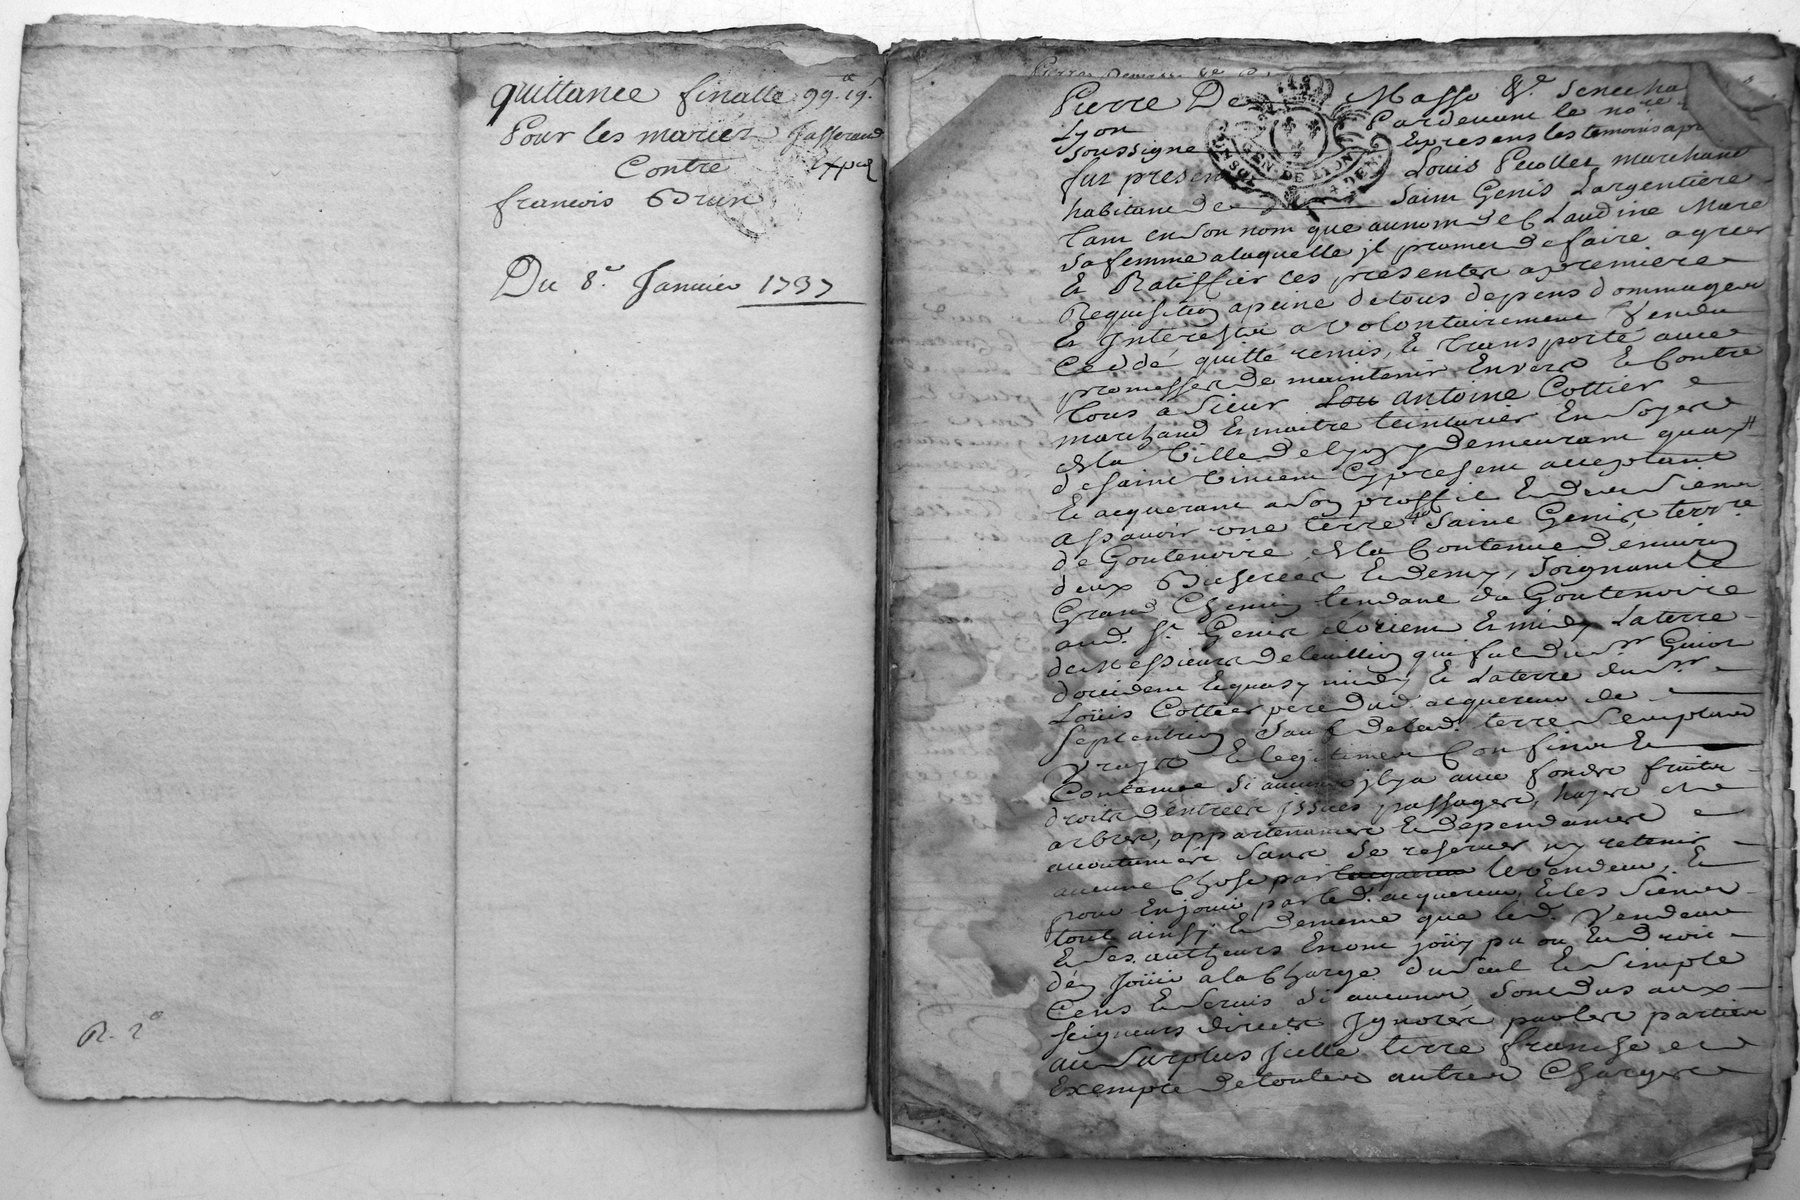 quittance finalle 99.tt 19.s
Pour les mariez Jasserand
Contre
francois Brun
Exped
Du 8.e Janvier 1737
R. 2o
Pierre De Masso &.a Senechal
Lyon Pardevant le no.re
soussigne Et presens les temoins
fut present Louis Peollet marchand
habitant de Saint Genis Largentiere
tant en son nom que au nom de Claudine
sa femme a laquelle jl promet de faire agreer
Et Ratiffier ces presentes a premiere
Requisition a peine de tous depens dommages
Et Interests a volontairement Vendu
Ceddé quitté remis, Et transporté avec
promesses de maintenir Envers Et Contre
tous à sieur Antoine Cottier
marchand Et maitre teinturier En soyes
de la Ville de lyon y demeurant quay
de saint Vincent Cy present acceptant
Et acquerant a son proffit Et des siens
assavoir une terre Saint Genis, terre
de Goutenoire de la Contenue d'environ
deux Bicherées Et demy, Joignant le
Grand Chemin tendant de Goutenoire
aud. S.t Genis d'orient Et midy La terre
de Messieurs qui fut du S.r Guiot
d'occident Et quasy midy Et La terre du S.r
Loüis Cottier pere dud. acquereur de
septentrion Sauf de lad. terre ses plus
Vrays Et legitimes Confins Et
Contenue si aucuns jl y a avec fonds fruits
droits d'entrées jssues passages, hayes
arbres, appartenances Et dependances
accoutumées sans Se reserver ny retenir
aucune Chose par le vendeur, Et
pour En jouir par led. acquereur, Et les siens
tout ainsy Et de meme que led. Vendeur
Et ses autheurs En ont joüy pu ou Et droit
d'en joüir a la Charge du seul Et simple
Cens Et servis si aucuns sont dus aux
seigneurs directs Jgnorés par les parties
au surplus jcelle terre franche et
Exempte de toutes autres Charges